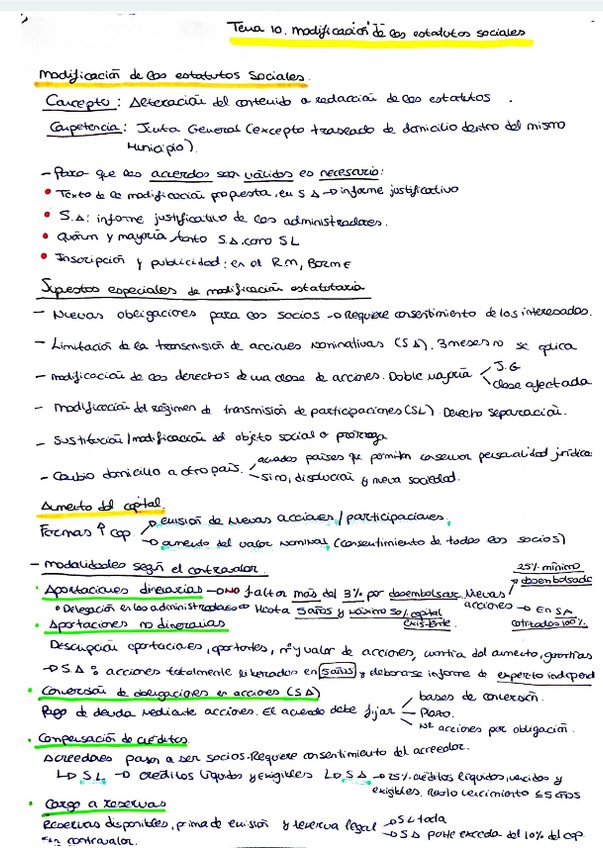 Tema 10. Modificación de los estatutos sociales
Modificación de los estatutos Sociales.
Concepto: Alteración del contenido o redacción de los estatutos.
Competencia: Junta General (excepto traslado de domicilio dentro del mismo
Municipio).
- Para que los acuerdos sean válidos es necesario:
• Texto de la modificación propuesta, en SA → informe justificativo
• S.A: informe justificativo de los administradores.
• Quórum y mayoría tanto S.A. como SL
• Inscripción y publicidad: en el R.M, BORME
Supuestos especiales de modificación estatutaria
- Nuevas obligaciones para los socios → Requiere consentimiento de los interesados.
- Limitación de la transmisión de acciones nominativas (SA). 3 meses no se aplica
- Modificación de los derechos de una clase de acciones. Doble mayoría J.G
clase afectada
- Modificación del régimen de transmisión de participaciones (SL). Derecho separación.
- Sustitución/modificación del objeto social o prórroga
- Cambio domicilio a otro país. acuerdos países que permitan conservar personalidad jurídica
si no, disolución y nueva sociedad.
Aumento del capital.
Formas ↑ cap → emisión de nuevas acciones/participaciones.
→ aumento del valor nominal (consentimiento de todos los socios)
- Modalidades según el contravalor. 25% mínimo
desembolsado
• Aportaciones dinerarias → NO faltar más del 3% por desembolsar. Nuevas
acciones → En SA
• Delegación en los administradores Hasta 5 años y máximo 50% capital
existente. cotizadas 100%
• Aportaciones no dinerarias
Descripción aportaciones, aportantes, nº y valor de acciones, cuantía del aumento, garantías
→ SA: acciones totalmente liberadas en 5 años y elaborarse informe de experto independ
• Conversión de obligaciones en acciones (SA)
Pago de deuda mediante acciones. El acuerdo debe fijar bases de conversión.
Plazo.
Nº acciones por obligación.
• Compensación de créditos
Acreedores pasan a ser socios. Requiere consentimiento del acreedor.
↳ SL → créditos líquidos y exigibles ↳ SA → 25% créditos líquidos, vencidos y
exigibles. Resto vencimiento ≤5 años
• Cargo a reservas
Reservas disponibles, prima de emisión y reserva legal → SL toda
→ SA parte exceda del 10% del cap.
contravalor.